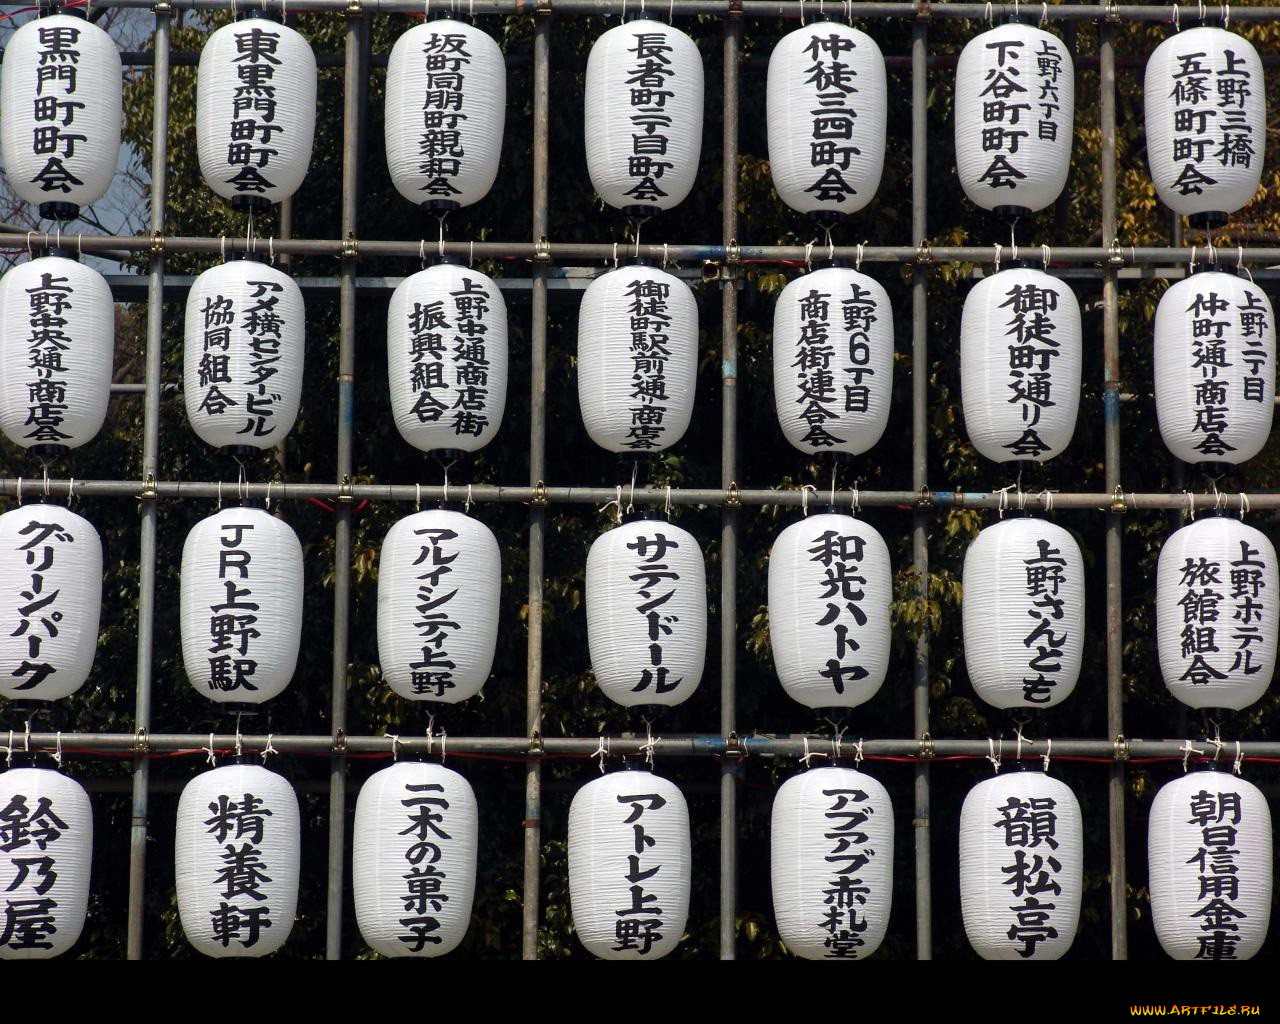 黒門町町会
東黒門町町会
坂町同朋町親和会
長者町二丁目町会
仲徒三四町会
上野六丁目
下谷町町会
上野三橋
五條町町会
上野中央通り商店会
アメ横センタービル
協同組合
上野中通商店街
振興組合
御徒町駅前通り商店会
上野6丁目
商店街連合会
御徒町通り会
上野二丁目
仲町通り商店会
グリーンパーク
JR上野駅
マルイシティ上野
サテンドール
和光ハトヤ
上野さんとも
上野ホテル
旅館組合
鈴乃屋
精養軒
二木の菓子
アトレ上野
アブアブ赤札堂
韻松亭
朝日信用金庫
WWW.ARTFILE.RU